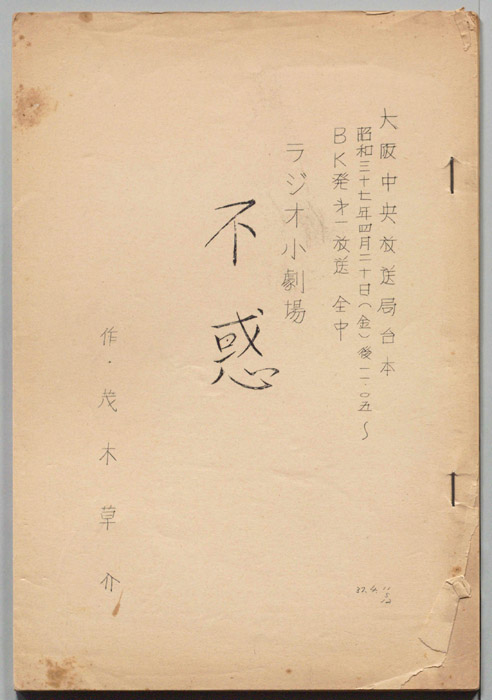 大阪中央放送局台本
昭和三十七年四月二十日(金)後一一・〇五〜
BK発才一放送 全中
ラジオ小劇場
不惑
作・茂木草介